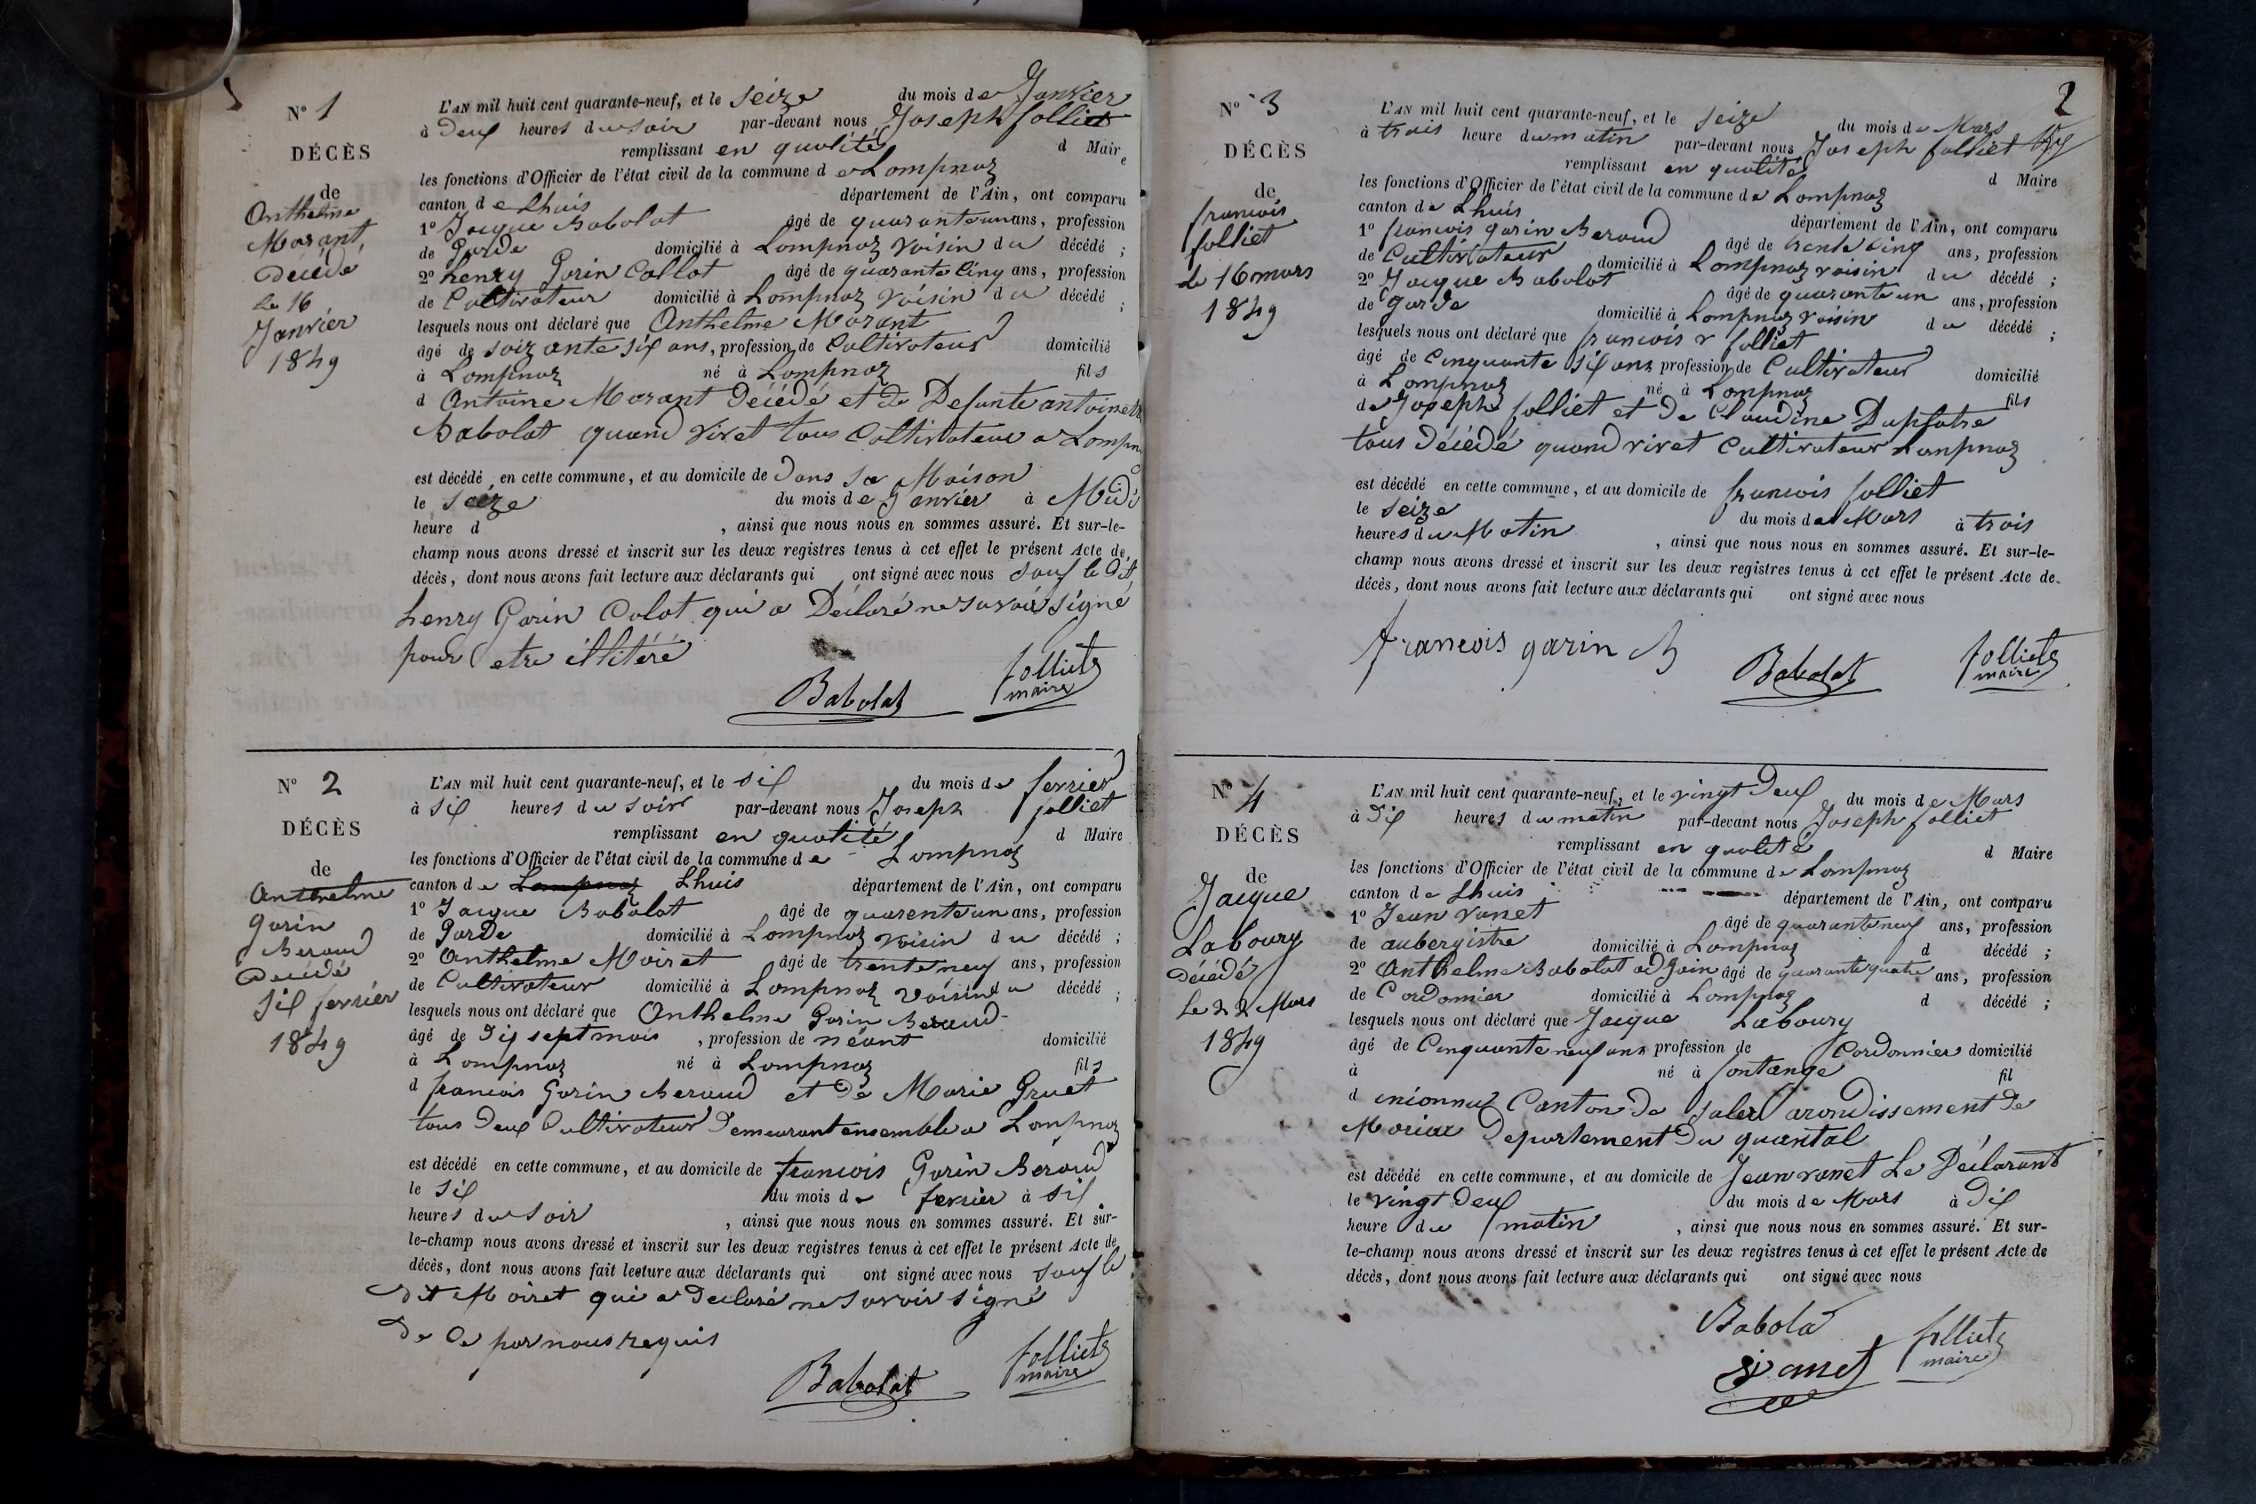 N° 1
DÉCÈS
de
Anthelme
Morant
Décédé
Le 16
Janvier
1849
L'AN mil huit cent quarante-neuf, et le seize du mois de Janvier
à deux heures du soir par-devant nous Joseph folliet
remplissant en qualité d Maire
les fonctions d'Officier de l'état civil de la commune de Lompnaz
canton de Lhuis département de l'Ain, ont comparu
1° Jacque Babolat âgé de quarante un ans, profession
de Garde domicilié à Lompnaz voisin du décédé ;
2° henry Garin Collot âgé de quarante Cinq ans, profession
de Cultivateur domicilié à Lompnaz voisin du décédé ;
lesquels nous ont déclaré que Anthelme Morant
âgé de soizante six ans, profession de Cultivateur domicilié
à Lompnaz né à Lompnaz fils
d Antoine Morant Décédé et de Defunte antoinette
Babolat quand vivet tous Cultivateur a Lompnaz
est décédé en cette commune, et au domicile de Dans sa Maison
le seize du mois de Janvier à Midi
heure d , ainsi que nous nous en sommes assuré. Et sur-le-
champ nous avons dressé et inscrit sur les deux registres tenus à cet effet le présent Acte de
décès, dont nous avons fait lecture aux déclarants qui ont signé avec nous sauf le dit
henry Garin Colot qui a Déclaré ne savoir signé
pour etre illitéré
Babolat folliet maire
N° 2
DÉCÈS
de
Anthelme
Garin
Beraud
Décédé
Six fevrier
1849
L'AN mil huit cent quarante-neuf, et le six du mois de fevrier
à six heures du soir par-devant nous Joseph folliet
remplissant en qualité d Maire
les fonctions d'Officier de l'état civil de la commune de Lompnaz
canton de Lompnaz Lhuis département de l'Ain, ont comparu
1° Jacque Babolat âgé de quarente un ans, profession
de Garde domicilié à Lompnaz voisin du décédé ;
2° Anthelme Moiret âgé de trente neuf ans, profession
de Cultivateur domicilié à Lompnaz voisin du décédé ;
lesquels nous ont déclaré que Anthelme Garin Beraud
âgé de Dix sept mois , profession de néant domicilié
à Lompnaz né à Lompnaz fils
d francois Garin Beraud et de Marie Gruet
tous Deux Cultivateur Demeurant ensemble a Lompnaz
est décédé en cette commune, et au domicile de francois Garin Beraud
le Six du mois de fevrier à six
heures du soir , ainsi que nous nous en sommes assuré. Et sur-
le-champ nous avons dressé et inscrit sur les deux registres tenus à cet effet le présent Acte de
décès, dont nous avons fait lecture aux déclarants qui ont signé avec nous sauf le
dit Moiret qui a declaré ne savoir signé
de Ce par nous requis
Babolat folliet maire
2
N° 3
DÉCÈS
de
francois
folliet
Le 16 mars
1849
L'AN mil huit cent quarante-neuf, et le seize du mois de Mars
à trois heure du matin par-devant nous Joseph folliet
remplissant en qualité d Maire
les fonctions d'Officier de l'état civil de la commune de Lompnaz
canton de Lhuis département de l'Ain, ont comparu
1° francois garin Beraud âgé de trente Cinq ans, profession
de Cultivateur domicilié à Lompnaz voisin du décédé ;
2° Jacque Babolat âgé de quarante un ans, profession
de garde domicilié à Lompnaz voisin du décédé ;
lesquels nous ont déclaré que francois folliet
âgé de Cinquante Six ans profession de Cultivateur domicilié
à Lompnaz né à Lompnaz fils
de Joseph folliet et de Claudine
tous Décédé quand vivet Cultivateur Lompnaz
est décédé en cette commune, et au domicile de francois folliet
le seize du mois de Mars à trois
heures du Matin , ainsi que nous nous en sommes assuré. Et sur-le-
champ nous avons dressé et inscrit sur les deux registres tenus à cet effet le présent Acte de
décès, dont nous avons fait lecture aux déclarants qui ont signé avec nous
francois garin B Babolat folliet maire
N° 4
DÉCÈS
de
Jacque
Laboury
Décédé
Le 22 Mars
1849
L'AN mil huit cent quarante-neuf, et le vingt Deux du mois de Mars
à Dix heures du matin par-devant nous Joseph folliet
remplissant en qualité d Maire
les fonctions d'Officier de l'état civil de la commune de Lompnaz
canton de Lhuis département de l'Ain, ont comparu
1° Jean vanet âgé de quarante neuf ans, profession
de aubergistre domicilié à Lompnaz d décédé ;
2° Anthelme Babolat adjoin âgé de quarante quatre ans, profession
de Cordonnier domicilié à Lompnaz d décédé ;
lesquels nous ont déclaré que Jacque Laboury
âgé de Cinquante neuf ans profession de Cordonnier domicilié
à né à fontange fil
d inconnu Canton de Saler arondissement de
Moriac Departement du quantal
est décédé en cette commune, et au domicile de Jean vanet Le Déclarant
le vingt Deux du mois de Mars à Dix
heure du matin , ainsi que nous nous en sommes assuré. Et sur-
le-champ nous avons dressé et inscrit sur les deux registres tenus à cet effet le présent Acte de
décès, dont nous avons fait lecture aux déclarants qui ont signé avec nous
Babola
vanet folliet maire